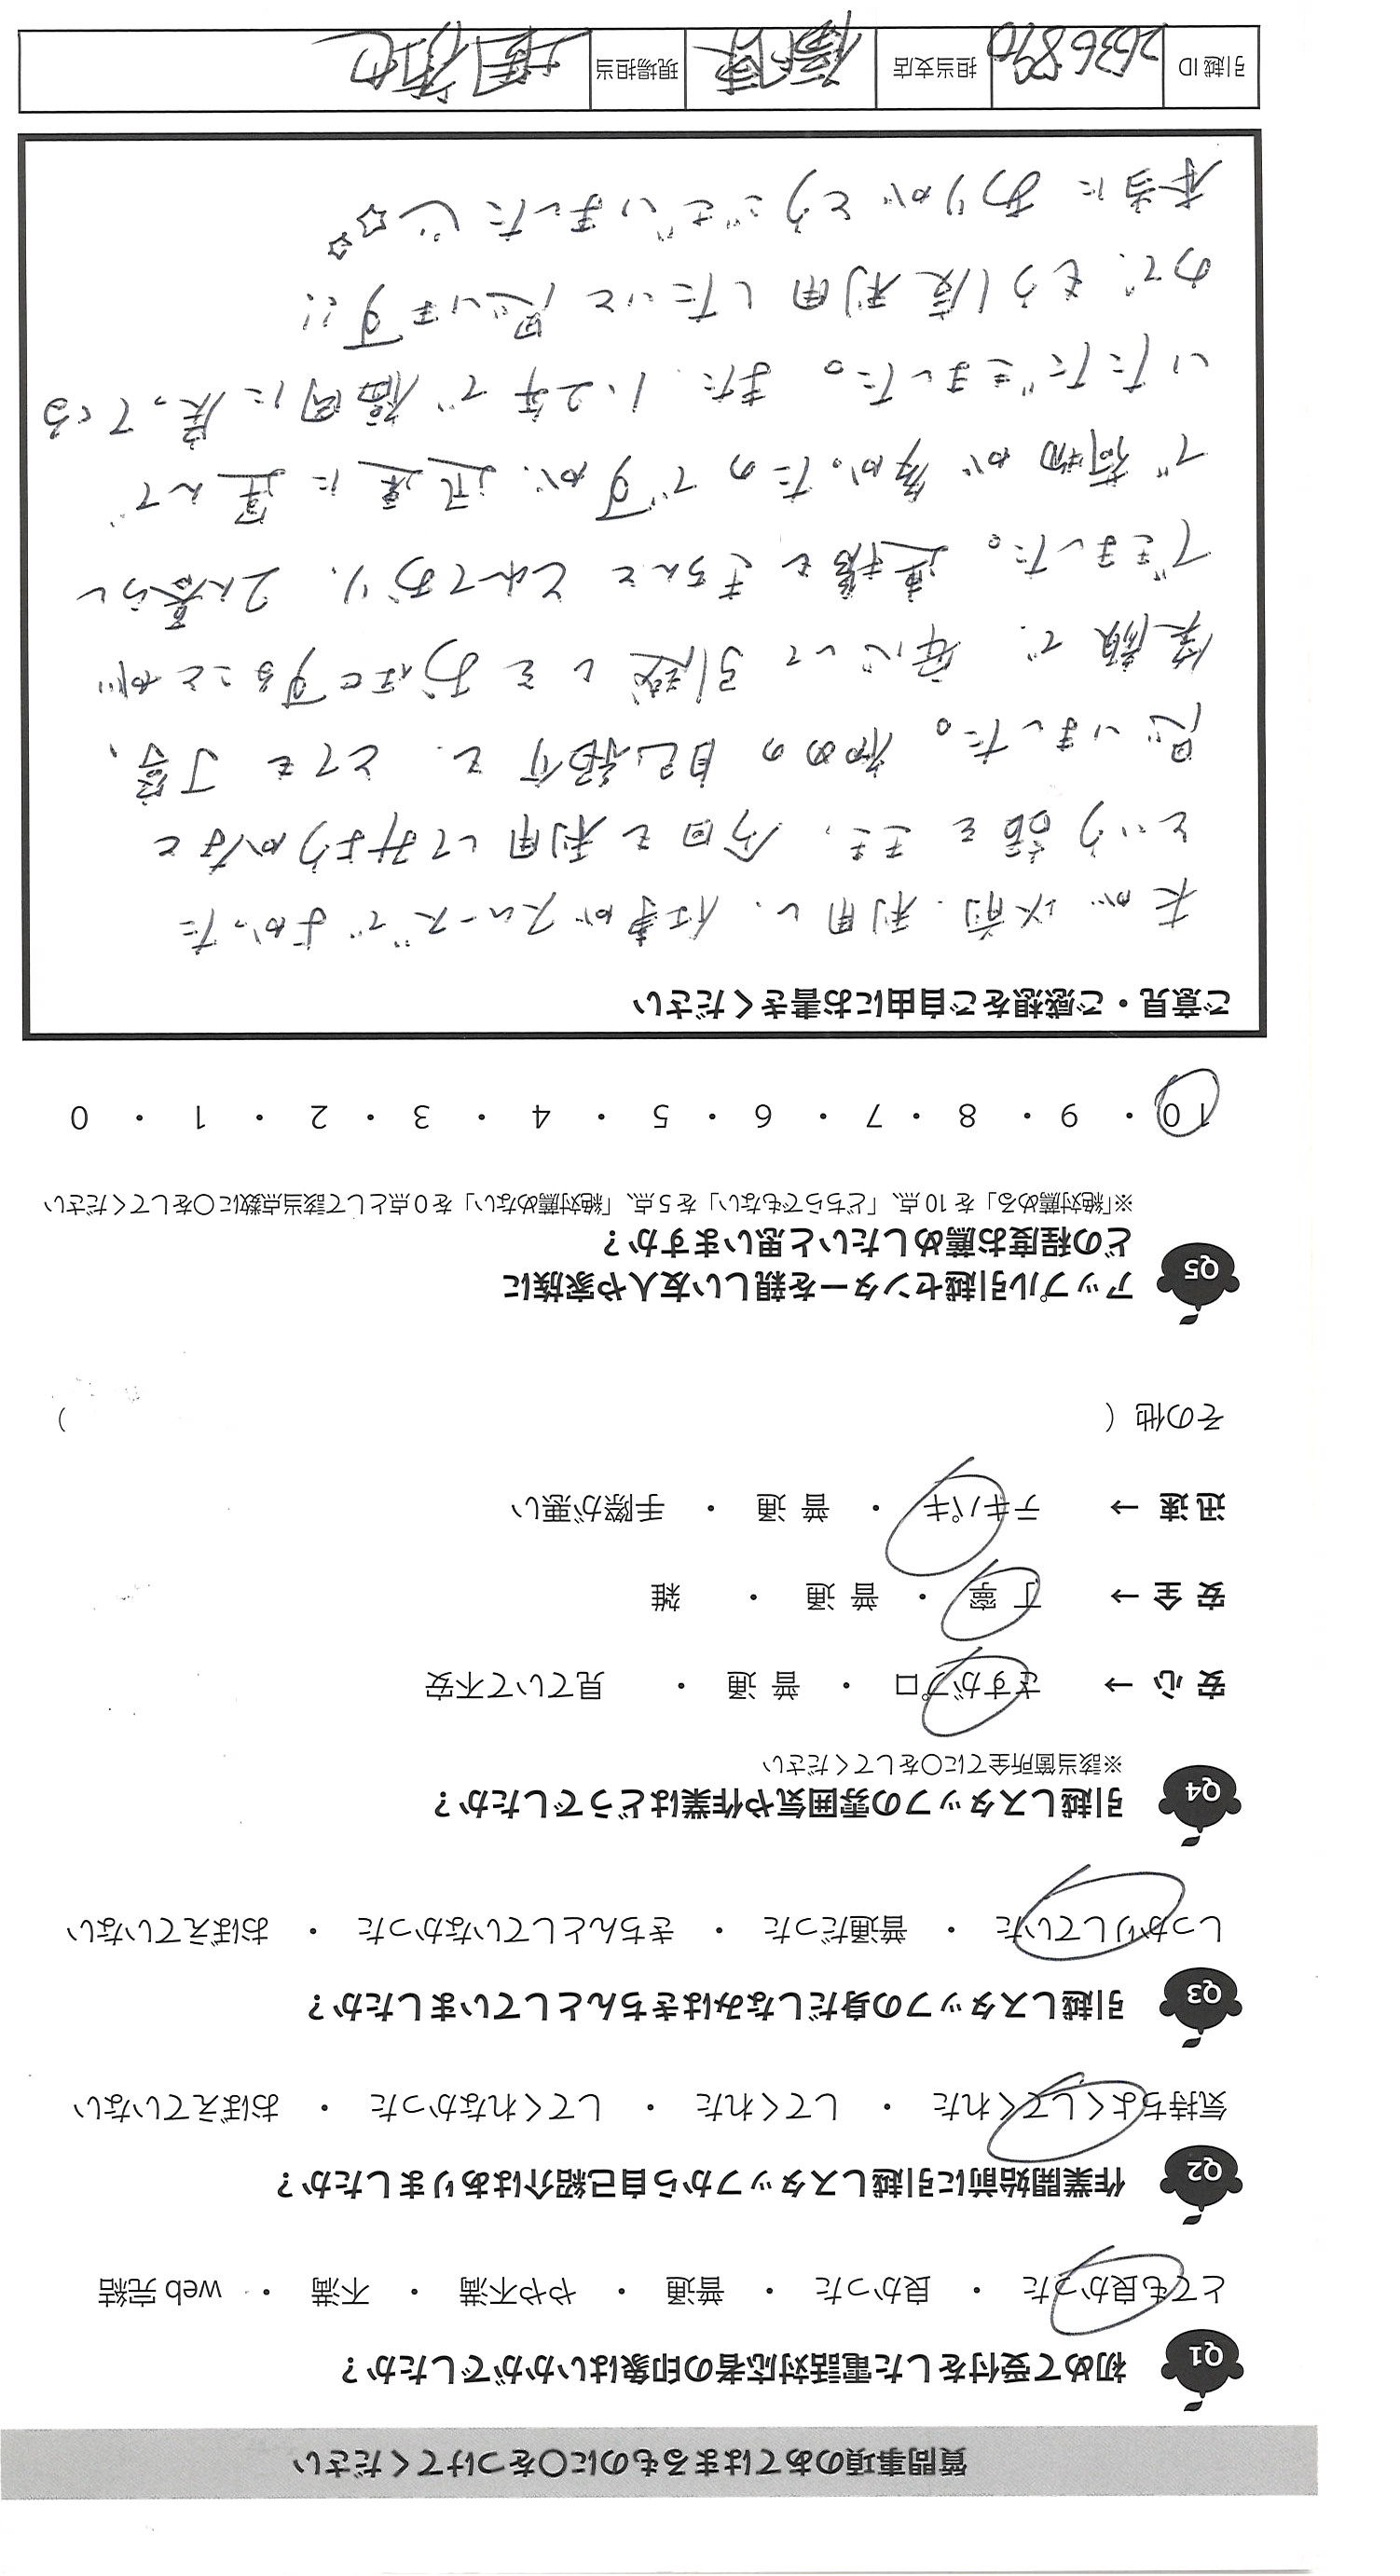 質問事項のあてはまるものに〇をつけてください
Q1 初めて受付をした電話対応者の印象はいかがでしたか？
とても良かった ・ 良かった ・ 普通 ・ やや不満 ・ 不満 ・ web 完結
Q2 作業開始前に引越しスタッフから自己紹介はありましたか？
気持ちよくしてくれた ・ してくれた ・ してくれなかった ・ おぼえていない
Q3 引越しスタッフの身だしなみはきちんとしていましたか？
しっかりしていた ・ 普通だった ・ きちんとしていなかった ・ おぼえていない
Q4 引越しスタッフの雰囲気や作業はどうでしたか？
※該当箇所全てに〇をしてください
安 心 → さすがプロ ・ 普 通 ・ 見ていて不安
安 全 → 丁 寧 ・ 普 通 ・ 雑
迅 速 → テキパキ ・ 普 通 ・ 手際が悪い
その他（ ）
Q5 アップル引越センターを親しい友人や家族に
どの程度お薦めしたいと思いますか？
※「絶対薦める」を 10 点、「どちらでもない」を 5 点、「絶対薦めない」を 0 点として該当点数に〇をしてください
10 ・ 9 ・ 8 ・ 7 ・ 6 ・ 5 ・ 4 ・ 3 ・ 2 ・ 1 ・ 0
ご意見・ご感想をご自由にお書きください
夫が以前、利用し、仕事がスムーズでよかった
という話をきき、今回も利用してみようかなと
思いました。初めの自己紹介も、とても丁寧、
笑顔で、安心して引越しをお任せすることが
できました。連携もきちんととれており、2人暮らし
で荷物が多かったのですが、迅速に運んで
いただきました。また、1、2年で福岡に戻ってくる
ので、もう1度利用したいと思います!!
本当にありがとうございました☆☆
引越 ID 2636890 担当支店 福岡 現場担当